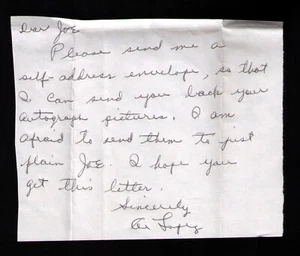 Dear Joe
Please send me a
self-address envelope, so that
I can send you back your
autograph pictures. I am
afraid, to send them to just
plain Joe. I hope you
get this letter.
Sincerely
Al Lopez